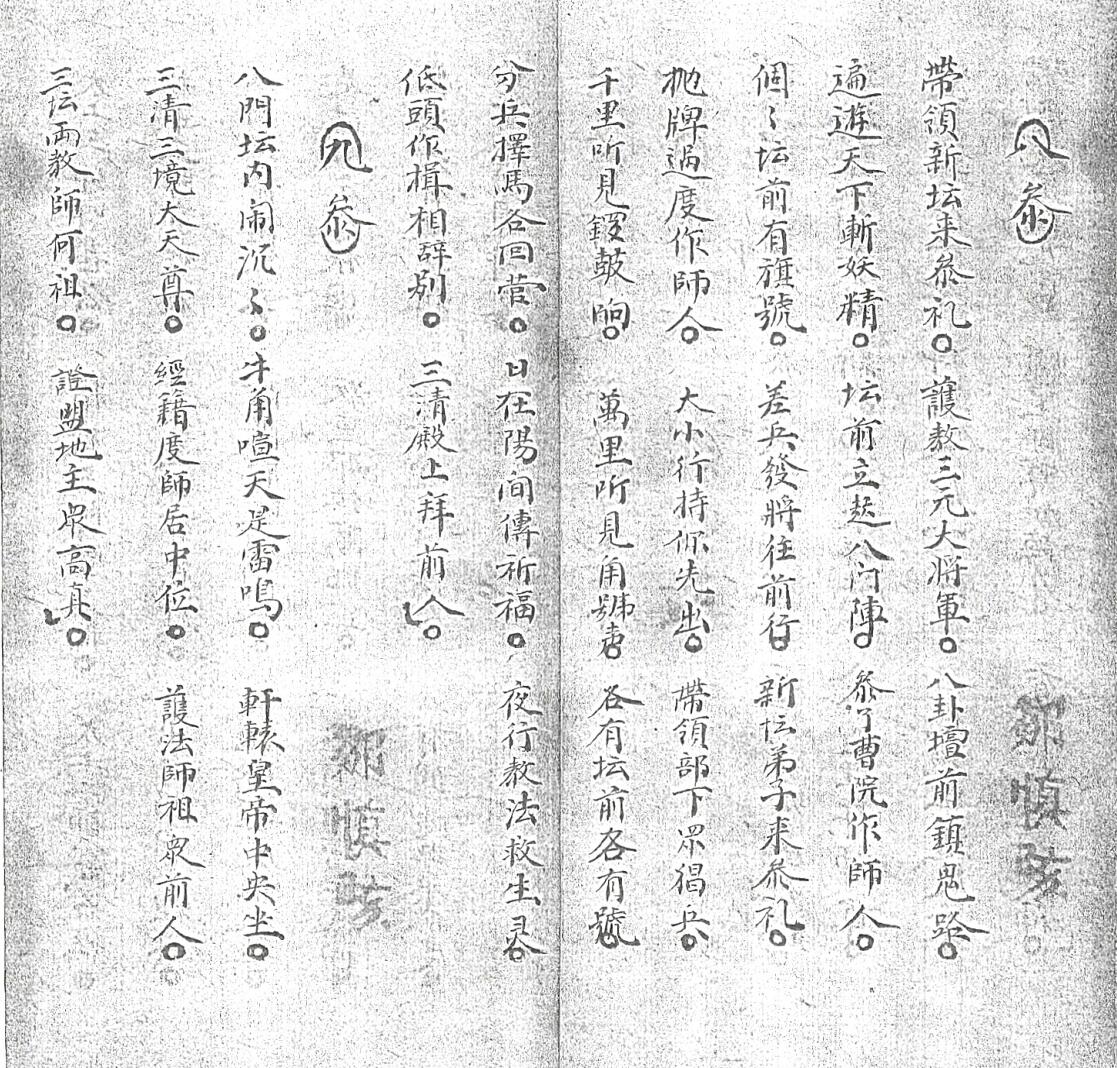 八參
帶領新坛来參礼。護教三元大将軍。八卦壇前鎮鬼路。
遍遊天下斬妖精。坛前立起八门陣。參了曹院作師人。
個〻坛前有旗號。差兵發将往前行。新坛弟子来參礼。
抛牌過度作師人。大小行持你先出。帶領部下眾猖兵。
千里听見鑼鼓响。萬里听見角號声。各有坛前各有號。
分兵擇馬各回营。日在陽间傳祈福。夜行教法救生灵。
低頭作揖相辞别。三清殿上拜前人。
九參
八門坛内闹沉〻。牛角喧天是雷鳴。軒轅皇帝中央坐。
三清三境大天尊。經籍度師居中位。護法師祖眾前人。
三坛両教師何祖。證盟地主眾高真。